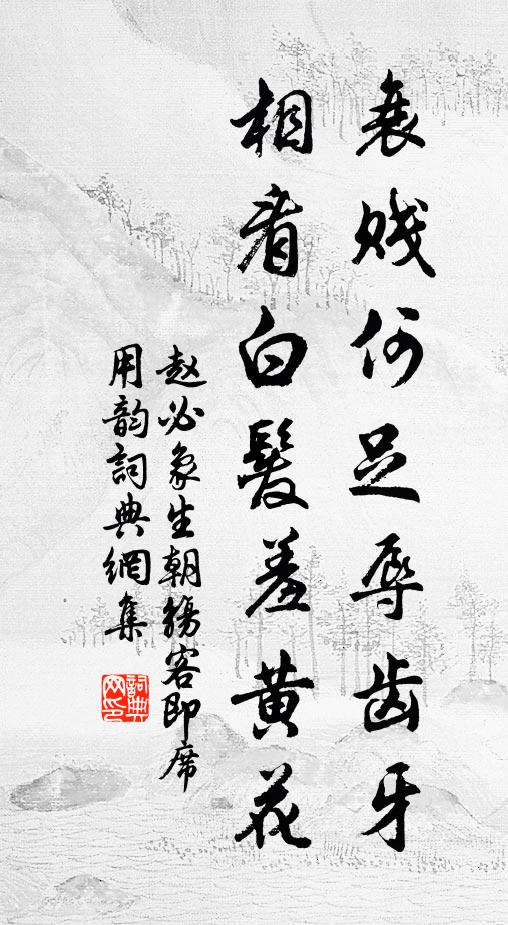 衰贱何足辱齿牙
相看白髮羞黄花
赵必象生朝觴客即席
用韵詞典網集
詞典
网印